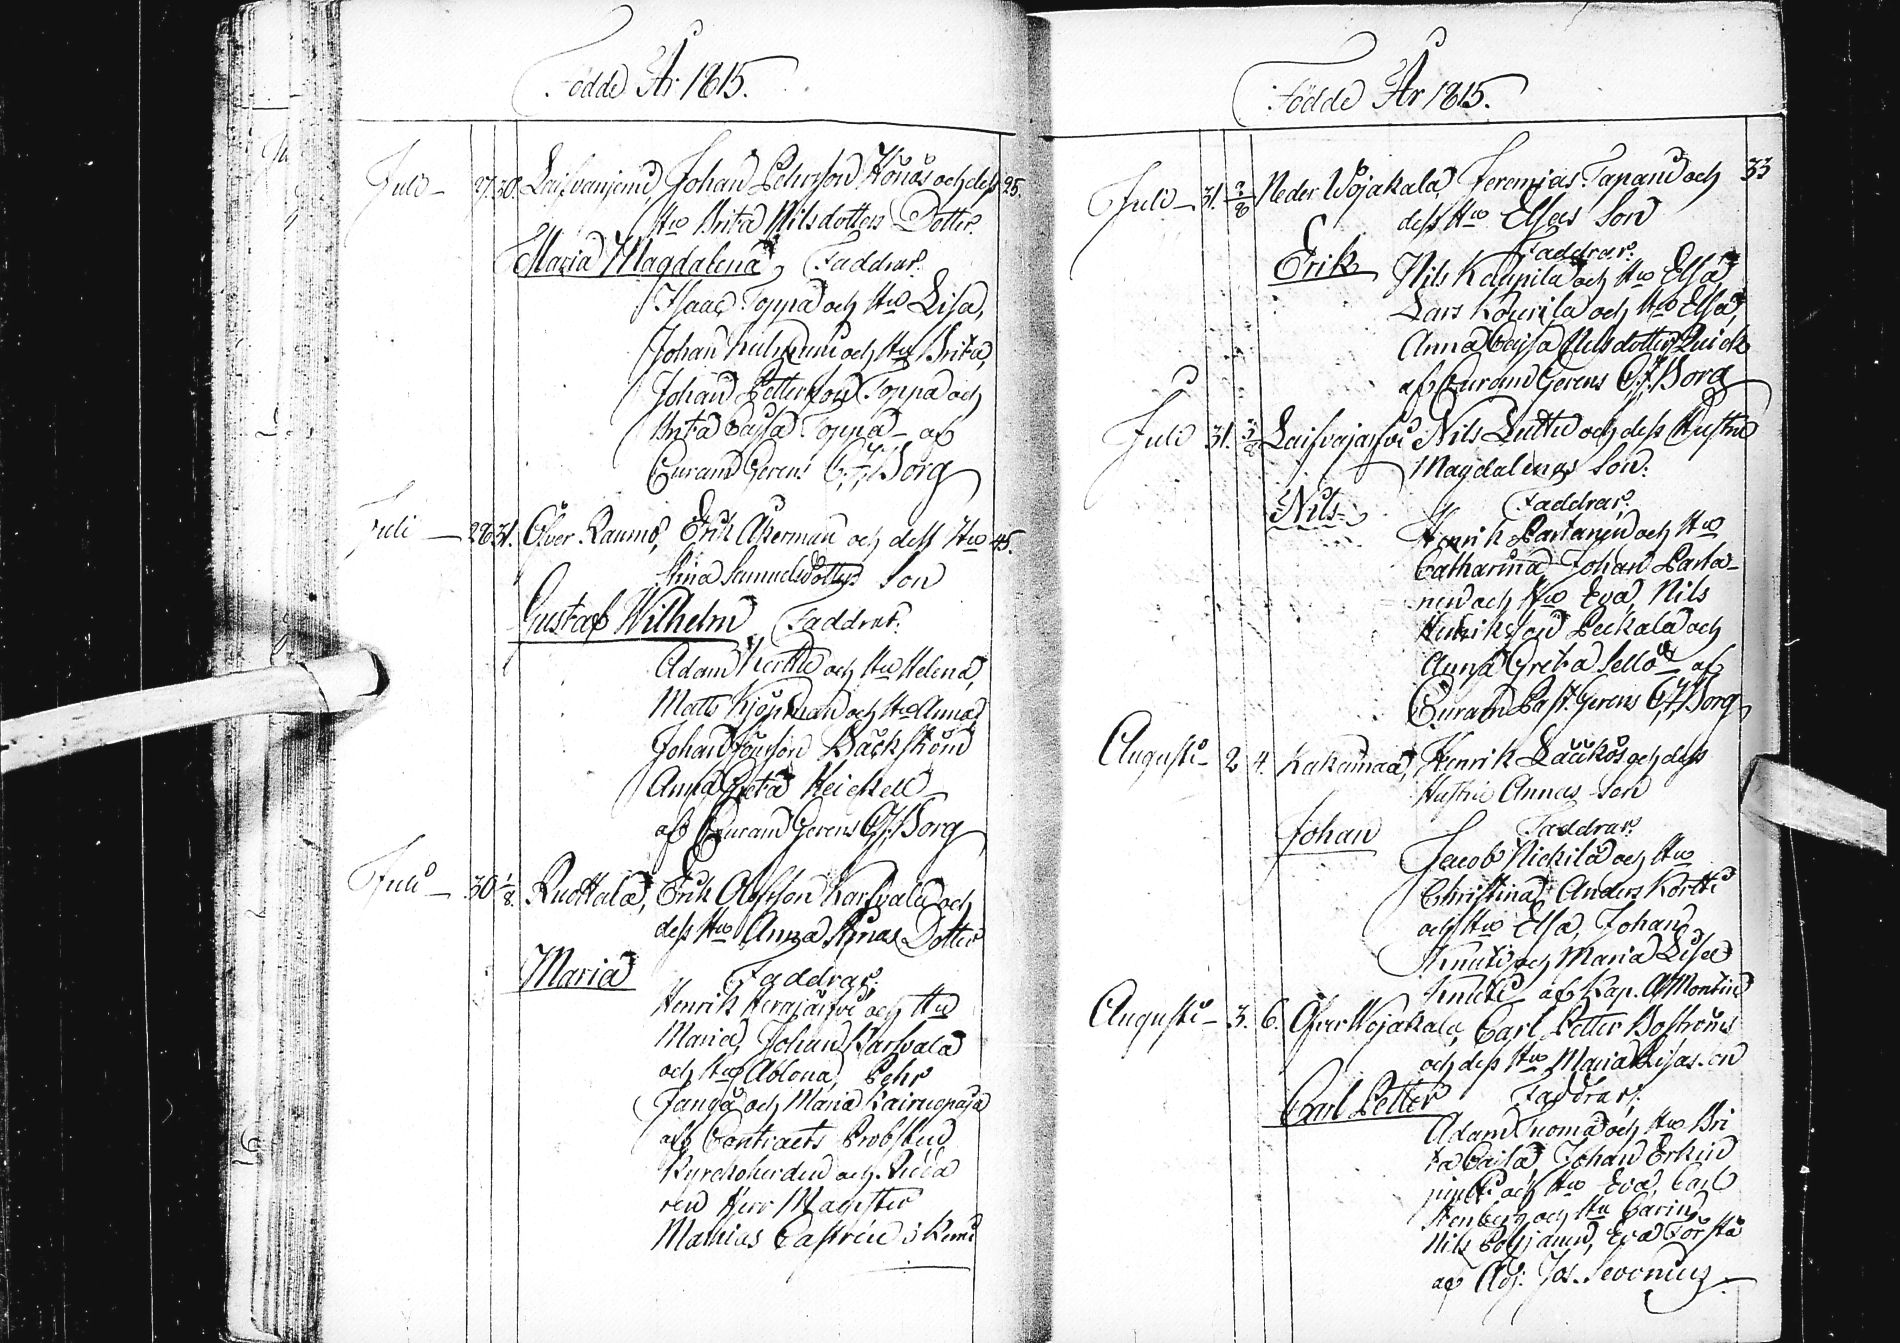 Födde År 1815.
Juli 27. 30. Johan Pehrsson Könös och dess 25.
Hu Brita Nilsdotters Dotter.
Maria Magdalena, Faddrar.
Isaac Toppa och Hu Lisa,
Johan och Hu Brita,
Johan Pettersson Toppa och
Brita Caisa Toppa af
Curam Gerens C. J. Borg
Juli 28 31. Öfver Raumo, Erik Åkerman och dess Hu 45.
Stina Samuelsdotters Son
Gustaf Wilhelm Faddrar.
Adam och Hu Helena,
Matts och Hu Anna,
Johan Bäckström
Anna Greta Heickell
af Curam Gerens C. J. Borg
Juli 30 1/8. Ruottala, Erik Olofsson Karsvala och
dess Hu Anna Stinas Dotter
Maria Faddrar.
Henrik Herajärfvi och Hu
Maria, Johan Karsvala
och Hu Ablona, Pehr
Janga och Maria
af Contracts Probsten
Kyrckoherden och Ridda
ren Herr Magister
Mathias Castrén i Kemi
Födde År 1815.
Juli 31. 2/8 Neder Wojakala, Jeremias Tapani och 33
dess Hu Elsas Son
Faddrar.
Erik Nils Kauppila och Hu Elsa,
Lars Kourila och Hu Elsa,
Anna Cajsa Nilsdotter Quick
af Curam Gerens C. J. Borg
Juli 31. 3/8 Laifvajärfvi Nils Luttu och dess Hustru
Magdalenas Son.
Nils. Faddrar.
Henrik Partanen och Hu
Catharina, Johan Parta-
nen och Hu Eva, Nils
Henriksson Peckala och
Anna Greta Sello af
Curam Past. Gerens C. J. Borg
Augusti 2 4. Kakamaa, Henrik Lääkös och dess
Hustru Annas Son
Johan Faddrar.
Jacob Nickilä och Hu
Christina, Anders Kortti
och Hu Elsa, Johan
Knuti och Maria Lisa
Knuti af Kap. A. Montin
Augusti 3. 6. Öfver Wojakala, Carl Petter Boströms
och dess Hu Maria Lisas Son
Carl Petter Faddrar.
Adam Tuoma och Hu Bri
ta Caisa, Johan Erkin
juntti och Hu Eva, Carl
Stenberg och Hu Carin,
Nils Pohjanen, Eva Törstä
af Adj. Jos. Sevonius